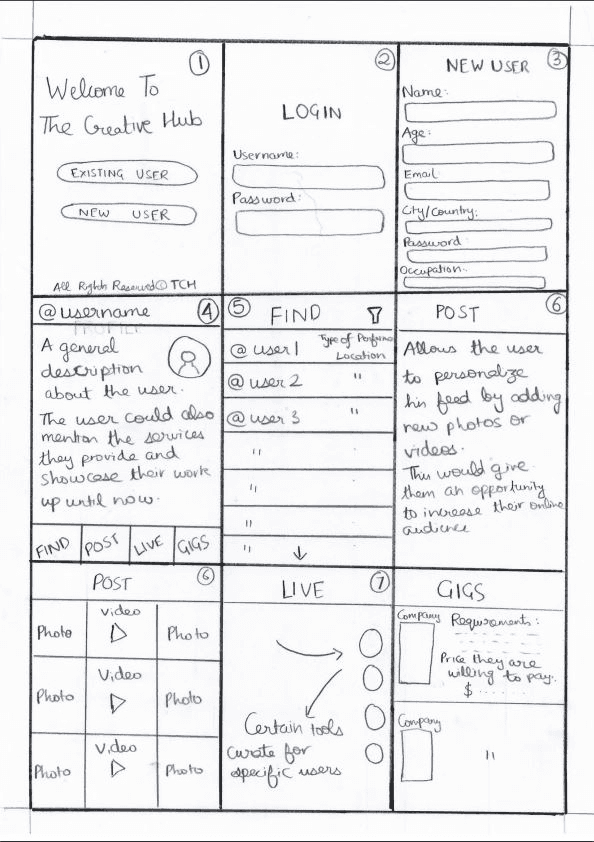 1
Welcome To
The Creative Hub
EXISTING USER
NEW USER
All Rights Reserved © TCH
2
LOGIN
Username:
Password:
3
NEW USER
Name:
Age:
Email
City/Country:
Password
Occupation.
4
@username
PROFILE
A general
description
about the user.
The user could also
mention the services
they provide and
showcase their work
up until now.
FIND POST LIVE GIGS
5
FIND
@user1 Type of Performer
Location
@user 2 "
@user 3 "
"
"
"
"
6
POST
Allows the user
to personalize
his feed by adding
new photos or
videos.
This would give
them an opportunity
to increase their online
audience
6
POST
Photo Video Photo
Photo Video Photo
Photo Video Photo
7
LIVE
Certain tools
curate for
specific users
GIGS
Company Requirements:
Price they are
willing to pay:
$
Company "